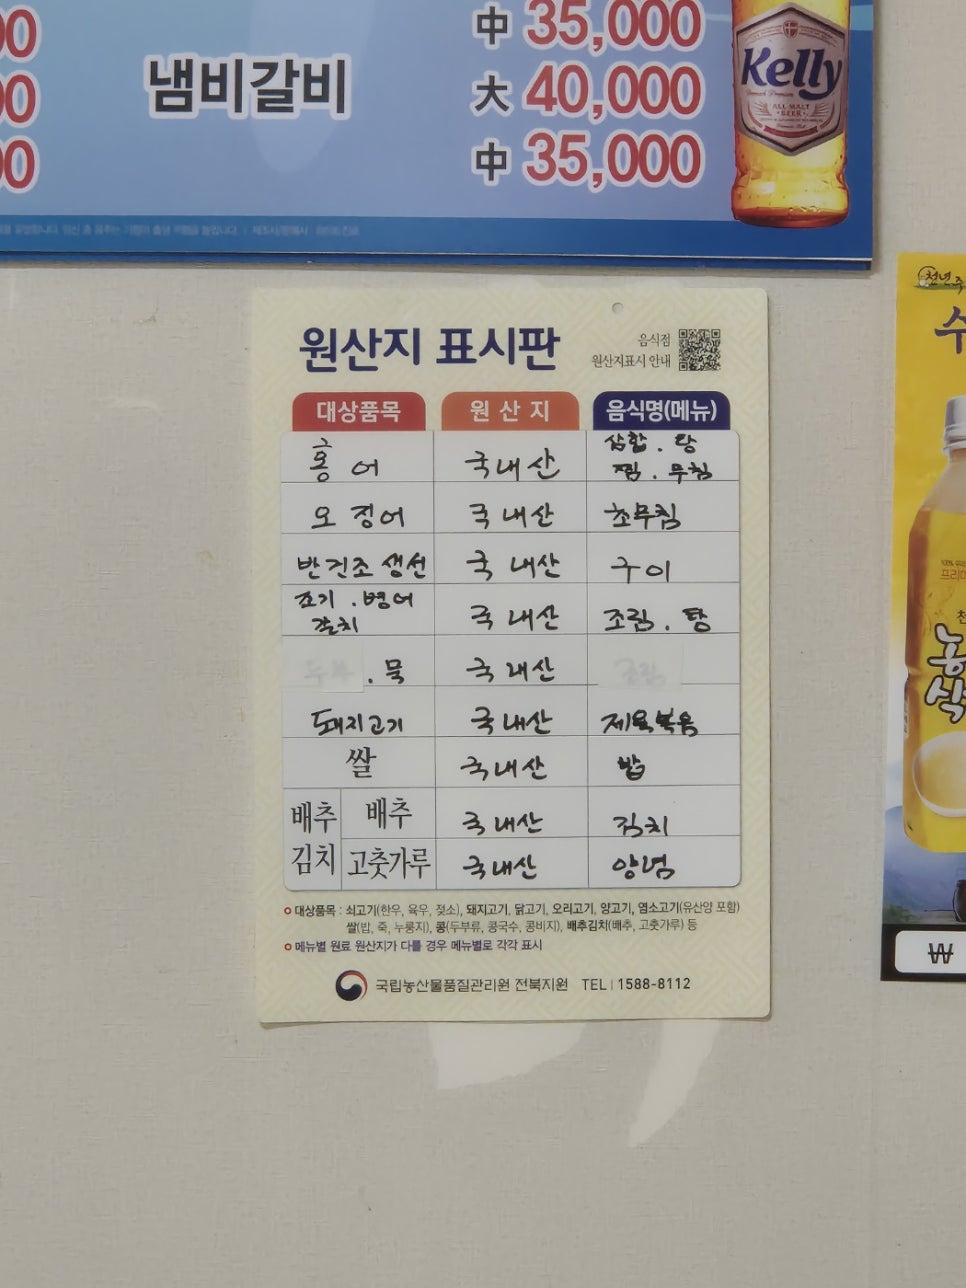 00 中 35,000
00 냄비갈비 大 40,000
00 中 35,000
Kelly
ALL MALT
BEER
천년
수
원산지 표시판
음식점
원산지표시 안내
대상품목 원산지 음식명(메뉴)
홍어 국내산 삼합. 탕
찜. 무침
오징어 국내산 초무침
반건조 생선 국내산 구이
조기. 병어
갈치 국내산 조림. 탕
두부. 묵 국내산 조림
돼지고기 국내산 제육볶음
쌀 국내산 밥
배추 배추 국내산 김치
김치 고춧가루 국내산 양념
대상품목 : 쇠고기(한우, 육우, 젖소), 돼지고기, 닭고기, 오리고기, 양고기, 염소고기(유산양 포함)
쌀(밥, 죽, 누룽지), 콩(두부류, 콩국수, 콩비지), 배추김치(배추, 고춧가루) 등
메뉴별 원료 원산지가 다를 경우 메뉴별로 각각 표시
국립농산물품질관리원 전북지원 TEL | 1588-8112
₩